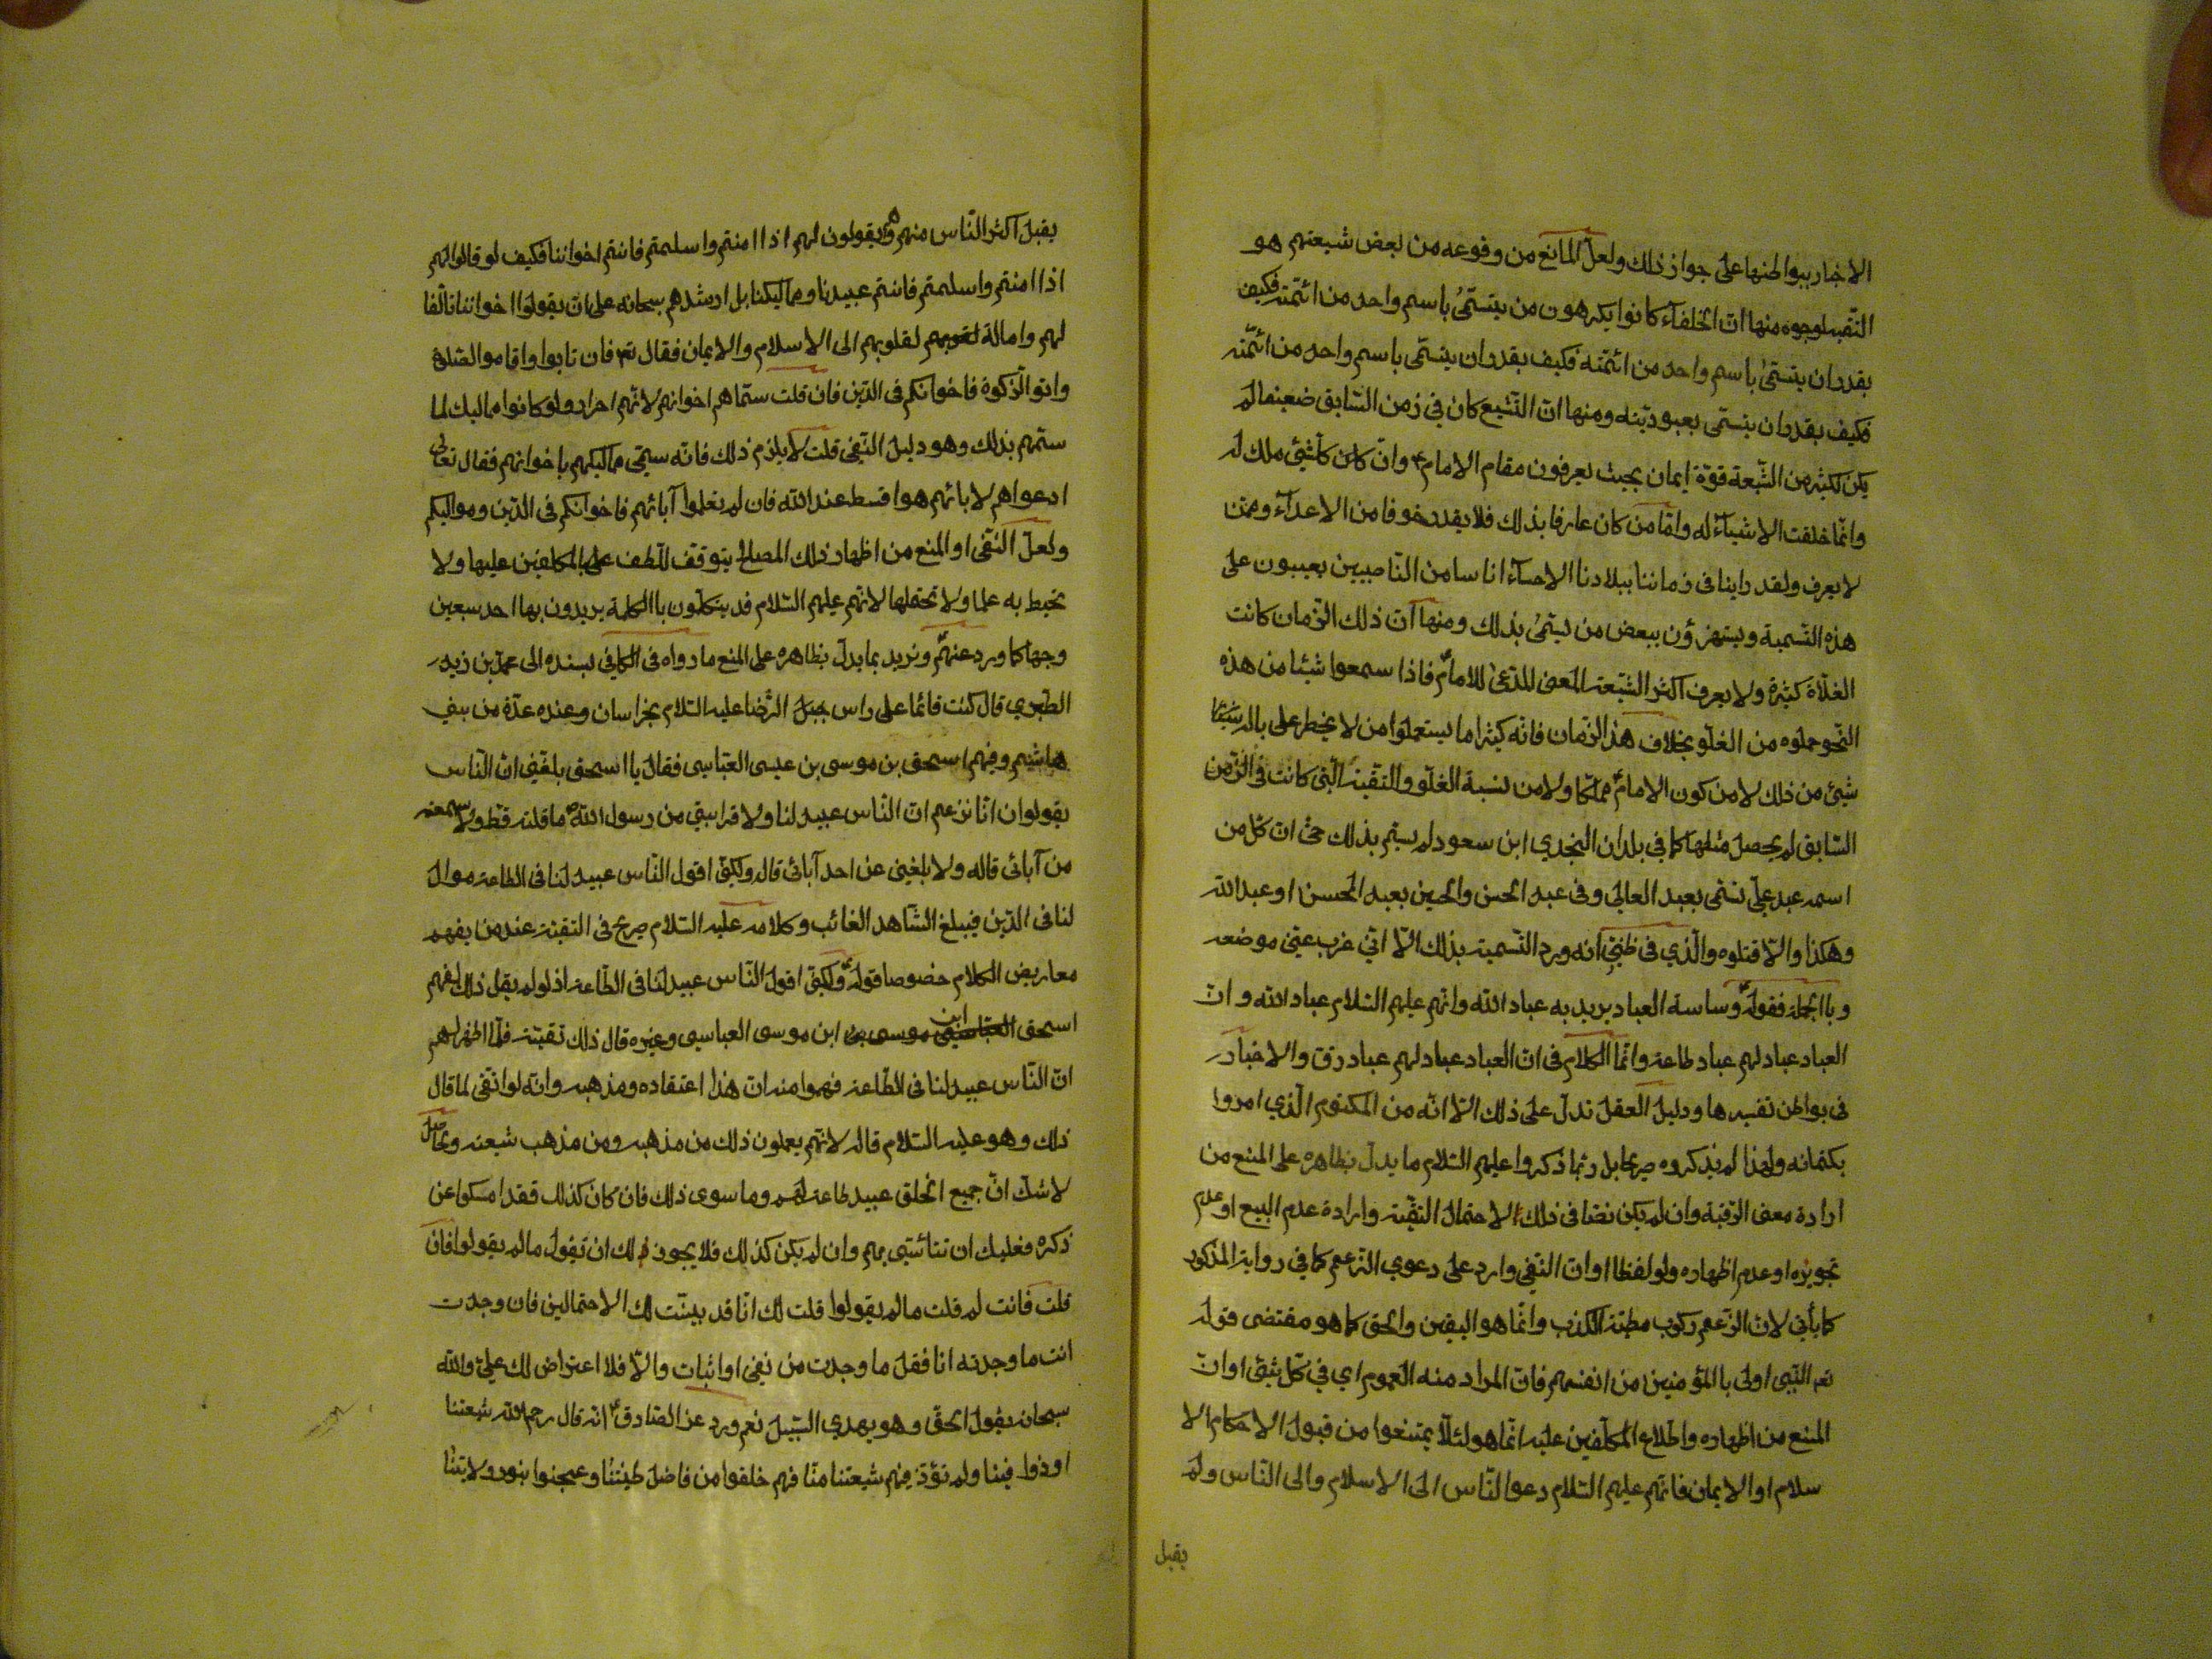 الاخبار ببواطنها على جواز ذلك ولعلّ المانع من وقوعه من بعض شيعتهم هو
التقيه لوجوه منها انّ الخلفاء كانوا يكرهون من يتسمّى باسم واحد من ائمّته فكيف
يقدر ان يتسمّى باسم واحد من ائمّته فكيف يقدر ان يتسمّى باسم واحد من ائمّته
فكيف يقدر ان يتسمّى بعبوديّته ومنها انّ التشيع كان في زمن السّابق ضعيفا لم
يكن لكثير من الشّيعة قوّة ايمان بحيث يعرفون مقام الامام ع وانّ كان كلّ شيئ ملك له
وانّما خلقت الاشياء له وامّا من كان عارفا بذلك فلا يقدر خوفا من الاعداء وممّن
لا يعرف ولقد راينا في زماننا ببلادنا الاحساء اناسا من النّاصبين يعيبون على
هذه التّسمية ويستهزؤن ببعض من يسمّى بذلك ومنها انّ ذلك الزّمان كانت
الغلاة كثيرة ولا يعرف اكثر الشّيعة المعنى المدّعى للامام ع فاذا سمعوا شيئا من هذه
النّحو حملوه من الغلو بخلاف هذا الزّمان فانّه كثيرا ما يستعملوا من لا يخطر على باله
شيئ من ذلك لا من كون الامام ع مملّكا ولا من نسبة الغلو والتقيّة الّتى كانت في الزّمن
السّابق لم يحصل مثلها كما في بلدان النجدي ابن سعود لم يسمّ بذلك حتّى انّ كلّ من
اسمه عبد عليّ تسمّى بعبد العالي وفي عبد الحسن والحسين بعبد المحسن او عبد الله
وهكذا والّا قتلوه والّذي في ظنّي انّه ورد التّسمية بذلك الّا انّي عزب عنّي موضعه
وبا الجملة فقوله ع وساسة العباد يريد به عباد الله وانّهم عليهم السّلام عباد الله وانّ
العباد عباد لهم عباد طاعة وانّما الكلام في انّ العباد عباد لهم عباد رقّ والاخبار
في بواطن تفسيرها ودليل العقل تدلّ على ذلك الّا انّه من المكتوم الّذي امروا
بكتمانه ولهذا لم يذكروه صريحا بل ربّما ذكروا عليهم السّلام ما يدلّ بظاهره على المنع من
ارادة معنى الرّقية وان لم يكن نصّا في ذلك لاحتمال التقيّة وارادة عدم البيع او عدم
تجويزه او عدم اظهاره ولو لفظا او انّ النّفي وارد على دعوي الزّعم كما في رواية المذكور
كما يأتي لانّ الزّعم ركوب مطيّة الكذب وانّما هو اليقين والحق كما هو مقتضى قوله
تع النّبي اولى با المؤمنين من انفسهم فانّ المراد منه العموم اي في كلّ شيئ او انّ
المنع من اظهاره واطلاع المكلّفين عليه انّما هو لئلّا يمتنعوا من قبول الاحكام الا
سلام او الايمان فانّهم عليهم السّلام دعوا النّاس الى الاسلام والى النّاس ولم
يقبل
يقبل اكثر النّاس منهم ويقولون لهم اذا امنتم واسلمتم فانتم اخواننا فكيف لو قالوا لهم
اذا امنتم واسلمتم فانتم عبيدنا ومماليكنا بل ارشدهم سبحانه على ان يقولوا اخواننا تالّفا
لهم وامالة لقلوبهم الى الاسلام والايمان فقال تع فان تابوا واقاموا الصّلوة
واتوا الزّكوة فاخوانكم في الدّين فان قلت سمّاهم اخوانهم لانّهم احرار ولو كانوا مماليك لما
سمّهم بذلك وهو دليل النّفي قلت لا يلزم ذلك فانّه سمّى مماليكهم باخوانهم فقال تعالى
ادعواهم لابائهم هو اقسط عند الله فان لم تعلموا آبائهم فاخوانكم في الدّين ومواليكم
ولعلّ النّفي او المنع من اظهار ذلك المصالح يتوقّف اللّطف على المكلّفين عليها ولا
نحيط به علما ولا تحتملها لانّهم عليهم السّلام قد يتكلّمون با الكلمة يريدون بها احد سبعين
وجها كما ورد عنهم ع ونريد بما يدلّ بظاهره على المنع ما رواه في الكافي بسنده الى محمّد بن زيد
الطّبري قال كنت قائما على راس الرّضا عليه السّلام بخراسان وعنده عدّة من بني
هاشم وفيهم اسحق بن موسى بن عيسى العبّاسي فقال يا اسحق بلغني انّ النّاس
يقولوان انّا نزعم انّ النّاس عبيد لنا ولا قرابتي من رسول الله ص ما قلته قطّ ولا سمعته
من آبائى قاله ولا بلغني عن احد آبائى قاله ولكنّي اقول النّاس عبيد لنا في الطاعة موال
لنا في الدّين فليبلغ الشّاهد الغائب وكلامه عليه السّلام صريح في التقيّة عند من يفهم
معاريض الكلام خصوصا قوله ع ولكنّي اقول النّاس عبيد لنا في الطّاعة اذ لو لم يقل ذلك لفهم
اسحق ابن موسى ابن موسى العباسي وغيره قال ذلك تقيّة فلمّا اظهر لهم
انّ النّاس عبيد لنا في الطّاعة فهموا منه انّ هذا اعتقاده ومذهبه وانّه لو اتّقى لما قال
ذلك وهو عليه السّلام قاله لانّهم يعلمون ذلك من مذهبه ومن مذهب شيعته وبحاصل
لا شكّ انّ جميع الخلق عبيد طاعة لهم وما سوى ذلك فان كان كذلك فقد امسكوا عن
ذكره فعليك ان تتائسّى بهم وان لم يكن كذلك فلا يجوز لك ان تقول ما لم يقولوا فان
قلت فانت لم قلت ما لم يقولوا قلت لك انّا قد بيّنت لك الاحتمالين فان وجدت
انت ما وجدته انا فقل ما وجدت من نفي او اثبات والّا فلا اعتراض لك عليّ والله
سبحانه يقول الحقّ وهو يهدي السّبيل نعم ورد عن الصّادق ع انّه قال رحم الله شيعتنا
اوذوا فينا ولم نؤذ فيهم شيعتنا منّا فهم خلقوا من فاضل طينتنا وعجنوا بنور ولايتنا